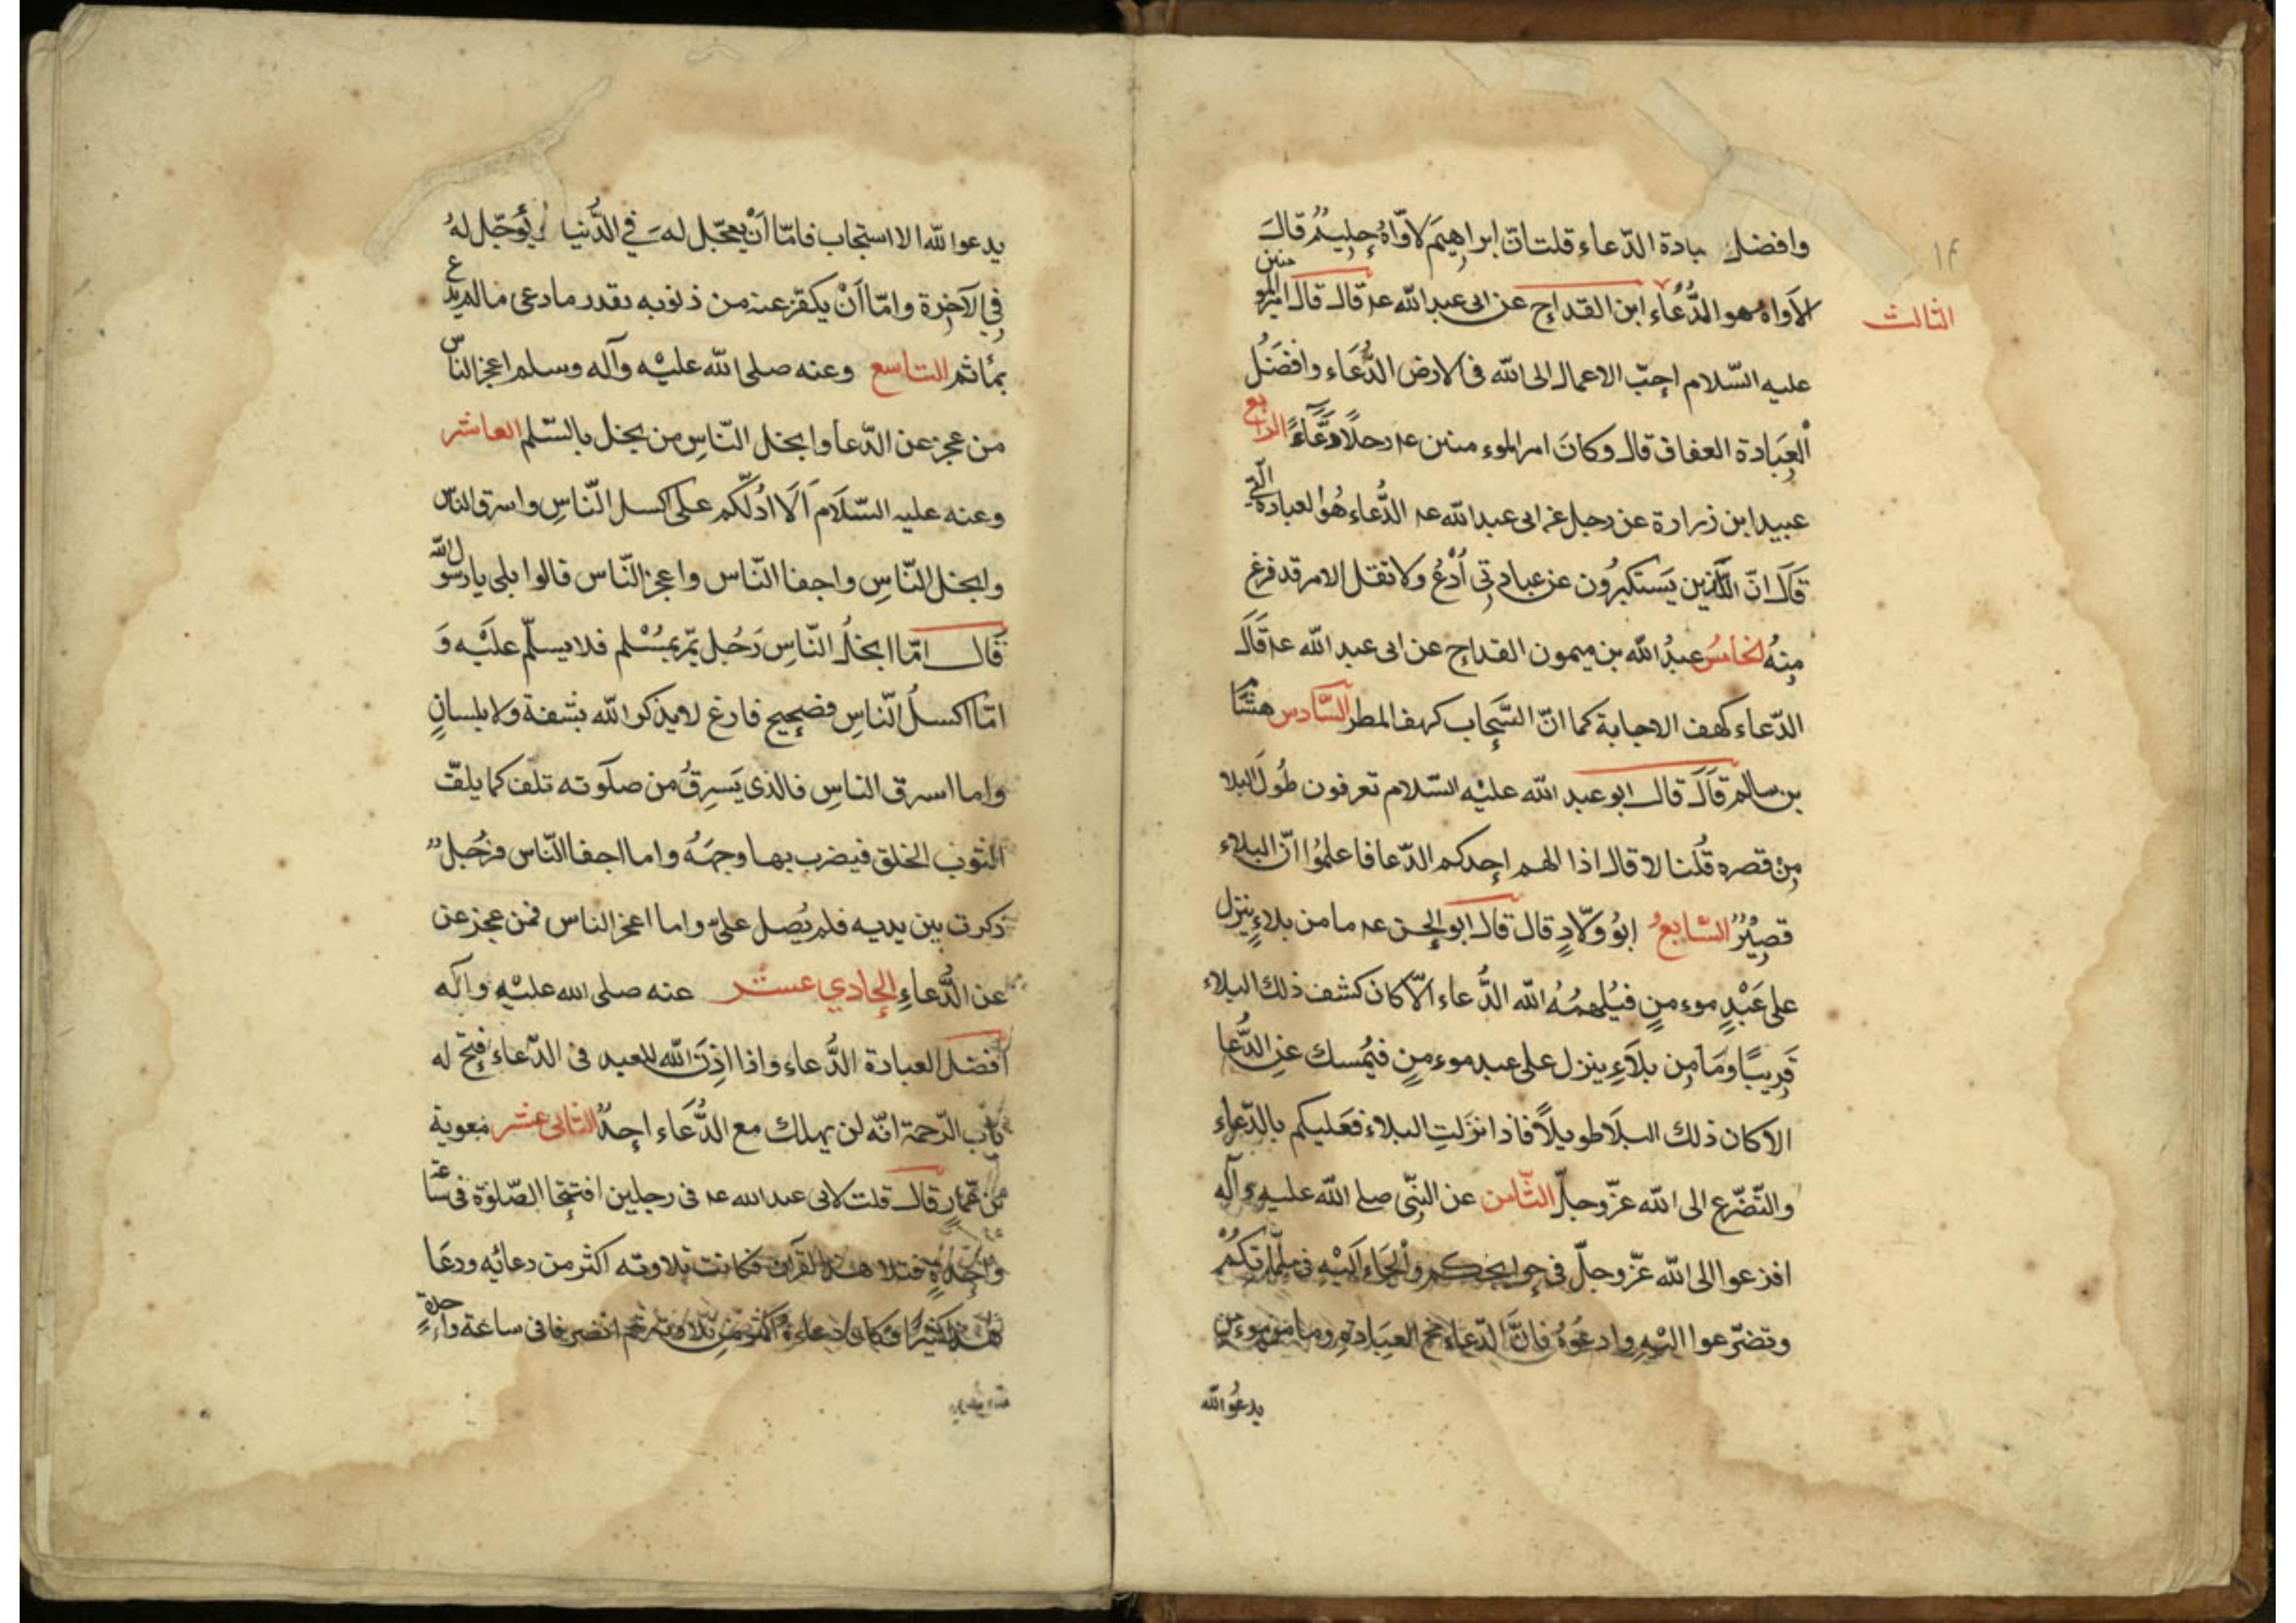 وافضل بادة الدّعاء قلت انّ ابراهيم لاوّاهُ حليمُ قال
١٤
الاواه هو الدُّعاء ابن القداح عن ابى عبد الله عه قال قال امير المو منين
الثالث
عليه السّلام احبّ الاعمال الى الله فى الارض الدُّعَاء وافضَلُ
العِبَادة العفاف قال وكانَ امير الموء منين عه رجلًا دعَّاءً الرابع
عبيد ابن زرارة عن رجل عن ابى عبد الله عه الدُّعاء هُو العبادة الّتى
قَالَ انّ الّذين يَستكبرُون عن عبادتى اُدْعُ ولا تقل الامر قد فرغ
مِنهُ الخامسُ عبدُ الله بن ميمون القداح عن ابى عبد الله عه قَالَ
الدّعاء كهف الاجابة كما انّ السَّحاب كهف المطر السَّادس هشَام
بن سالم قَالَ قال ابو عبد الله عليْه السّلام تعرفون طُولَ البلا
مِن قصره قُلنا لا قال اذا الهم احدكم الدّعا فاعلمُوا انّ البلاء
قصِيْرٌ السَّابعُ ابوُ ولّادٍ قال قال ابو الحسن عه ما من بلاءٍ ينزل
على عَبْدٍ موءمنٍ فيُلهمُهُ الله الدُّعاء الّا كان كشف ذلك البلاء
قَرِيبًا ومَا مِن بلآءٍ ينزل على عبد موءمنٍ فيُمسك عن الدُّعا
الا كان ذلك البلَا طويلاً فاذا نزَلتِ البلاء فعَليكم بالدّعاء
والتّضّرع الى الله عزّوجلّ الثّامن عن النبّى صلى الله عليه وآله
افزعوا الى الله عزّ وجلّ فى حوايجكم والْجَاءُ الَيْه فى ملّماتكُمْ
وتضرّعوا اليْهِ وادعُوهُ فانَّ الدّعاء مخ العبَادة وما من موءمن
يدعُو الله
يدعوا للّه الا استجاب فامّا اَنْ يعجّل له فى الدُّنيا او يُؤجّل لهُ
فى الآخرة وامّا اَنْ يكفّر عنه من ذنوبه بقدر ما دعى ما لم يدع
بمأثم التاسع وعنه صلى الله عليْه وآله وسلم اعجز النّاس
من عجز عن الدّعا وابخل النّاسِ من بخل بالسّلم العاشر
وعنه عليه السّلَام اَلَا ادُلّكم على اكسل النّاسِ واسرق النّاس
وابخل النّاسِ واجفا النّاس واعجز النّاس قالوا بلى يا رسول الله
قَال امّا ابخلُ النّاسِ رَجُل يمّر بمُسْلم فلا يسلّم عليَْه وَ
امّا اكسلُ النّاسِ فصحِيح فارغ لا يذكر الله بشفة ولا بلسانٍ
واما اسرق الناسِ فالذى يَسرِقُ من صلوته تلف كما يلفّ
الثوب الخلق فيضرب بها وجهَهُ واما اجفا النّاس فرَجُل
ذكرت بين يديه فلم يُصل علىّ واما اعجز الناس فمن عجز عن
عن الدُّعاءِ الحادي عشر عنه صلى الله عليْهِ وآله
افضل العبادة الدُّعاء واذا اذِنَ الله للعبد فى الدّعاء فتح له
باب الرّحمة انّه لن يهلك مع الدُّعَاء احدٌ الثانى عشر معوية
بن عمارٍ قال قلت لابى عبد الله عه فى رجلين افتتحا الصّلوة فى ساعة
واحدةٍ فتلا هذا القرآن فكانت تلاوته اكثر من دعائه ودعَا
هذا كثيرًا فكان دعاءهُ اكثر من تلاوته ثم انصرفا فى ساعة واحدةٍ